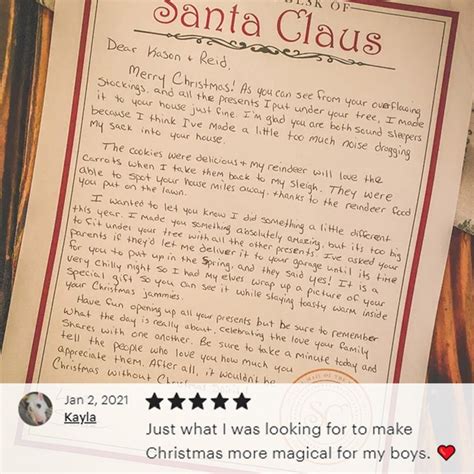 DESK OF
Santa Claus
Dear Kason + Reid,
Merry Christmas! As you can see from your overflowing
stockings, and all the presents I put under your tree, I made
it to your house just fine. I'm glad you are both sound sleepers
because I think I've made a little too much noise dragging
my sack into your house.
The cookies were delicious + my reindeer will love the
carrots when I take them back to my sleigh. They were
able to spot your house miles away, thanks to the reindeer food
you put on the lawn.
I wanted to let you know I did something a little different
this year. I made you something absolutely amazing, but its too big
to fit under your tree with all the other presents. I've asked your
parents if they'd let me deliver it to your garage until its time
for you to put up in the Spring, and they said yes! It is a
very chilly night so I had my elves wrap up a picture of your
special gift so you can see it while staying toasty warm inside
your Christmas jammies.
Have fun opening up all your presents but be sure to remember
what the day is really about, celebrating the love your family
shares with one another. Be sure to take a minute today and
tell the people who love you how much you
appreciate them. After all, it wouldn't be
Christmas without Christmas
SC
Jan 2, 2021 ★★★★★
Kayla
Just what I was looking for to make
Christmas more magical for my boys. ❤️